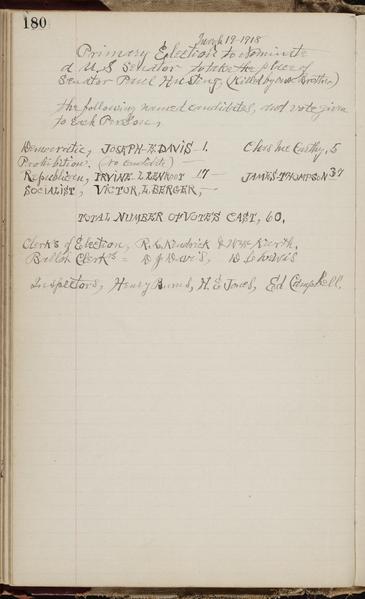 180
March 19-1918
Primary Election to nominate
a U.S Senator to take the place of
Senator Paul Husting, (Killed by his Brother)
the following named candidates, and vote given
to each Person,
Democratic, JOSEPH E DAVIS 1. Chas McCarthy, 5
Prohibition. (no candidate) —
Republican, IRVINE L LENROOT 17 — JAMES THOMPSON 37
SOCIALIST, VICTOR. L. BERGER, —
TOTAL NUMBER OF VOTES CAST, 60.
Clerks of Election, R. C. Kindrick & Wm
Ballot Clerks = D J Davis, D Lewis
Inspectors, Henry Burns, H. E Jones, Ed Campbell.